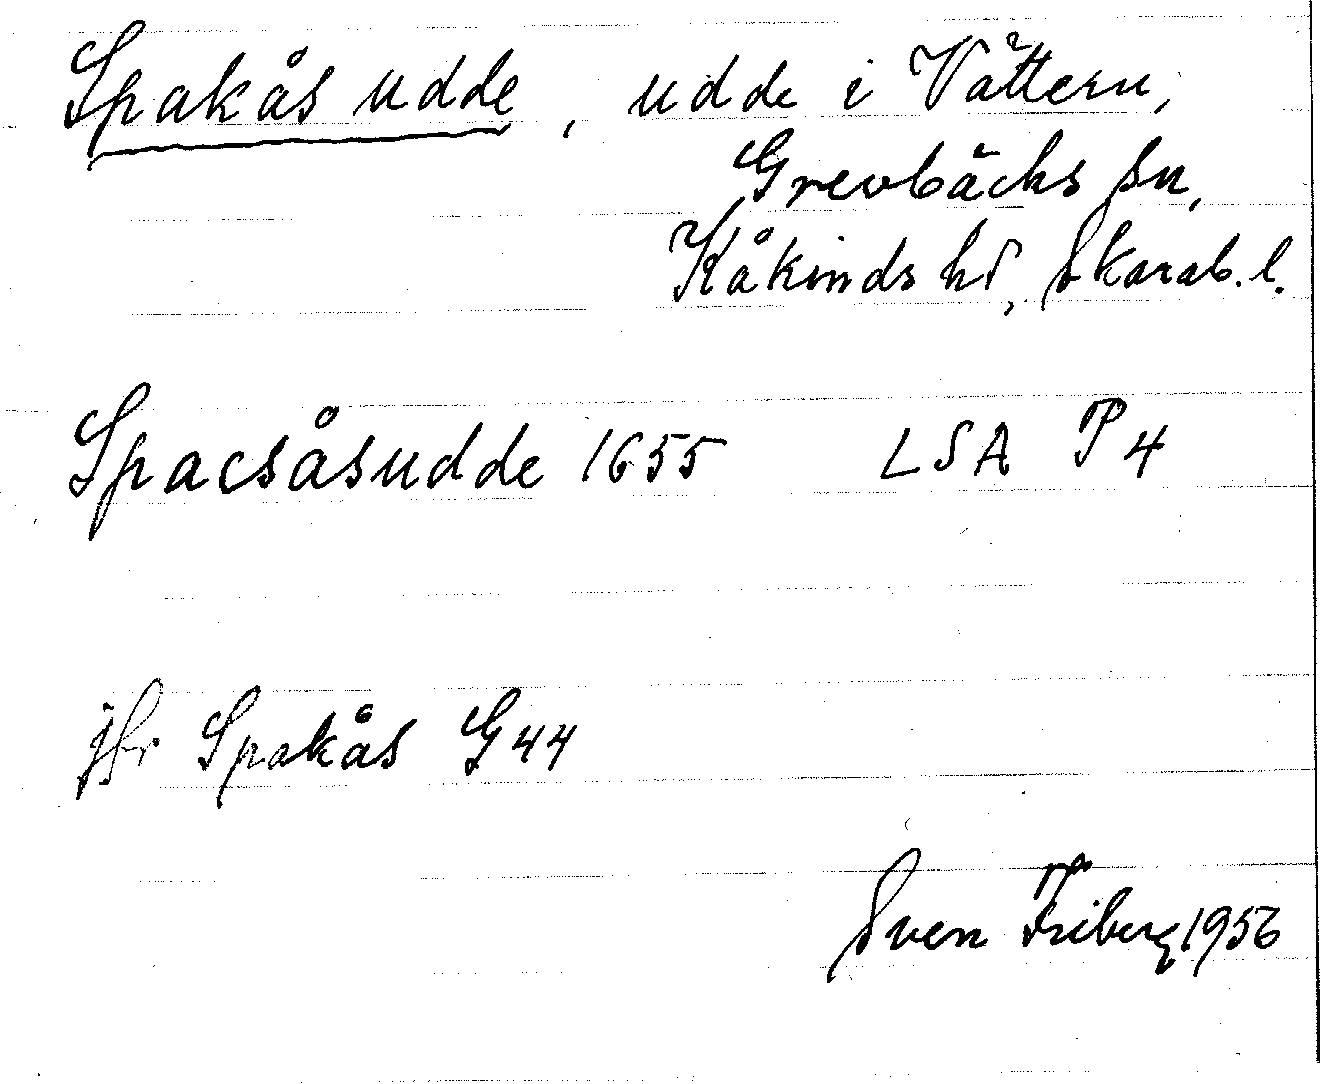 Spakås udde, udde i Vättern,
Grevbäcks sn,
Kåkinds hd, Skarab. l.
Spacsåsudde 1655 LSA P4
jfr Spakås G44
Sven Friberg 1956